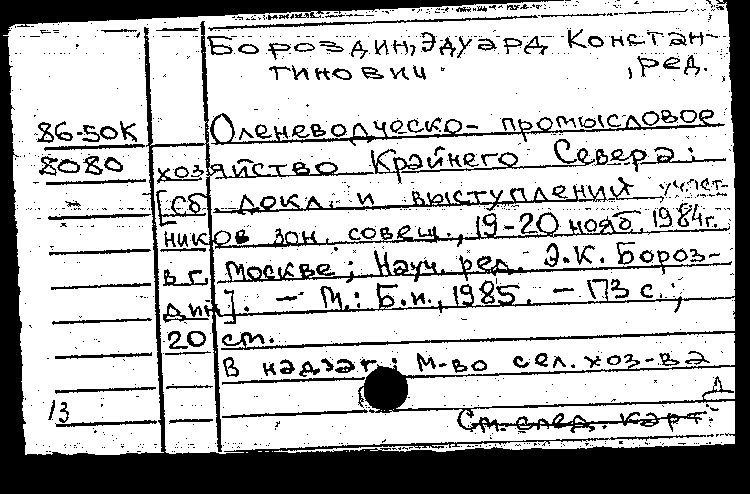 Бороздин, Эдуард Констан-
тинович. , ред.
86-50К Оленеводческо- промысловое
8080 хозяйство Крайнего Севера:
[Сб. докл. и выступлений участ-
ников зон. совещ., 19-20 нояб. 1984г.
в г. Москве; Науч. ред. Э.К. Бороз-
дин]. — М.: Б.и., 1985. — 113 с.;
20 см.
В надзаг.: М-во сел. хоз-ва
13
См. след. карт.